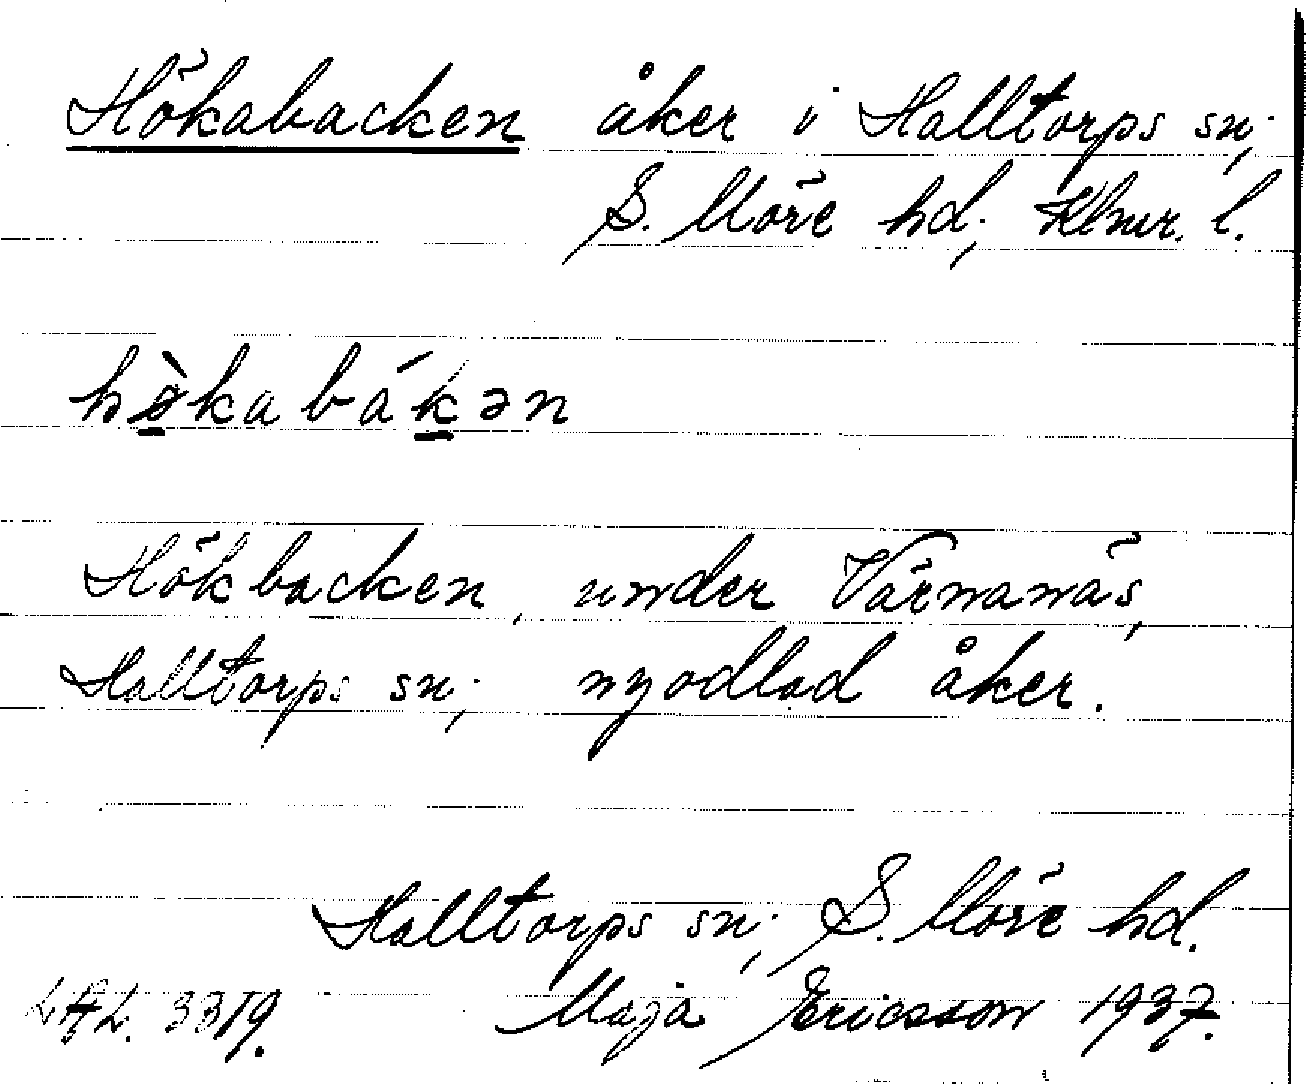 Hökabacken åker i Halltorps sn;
S. Möre hd; Klmr. l.
hø̀kabákən
Hökbacken, under Värnanäs,
Halltorps sn; nyodlad åker.
Halltorps sn; S. Möre hd.
3319. Maja Ericsson 1937.